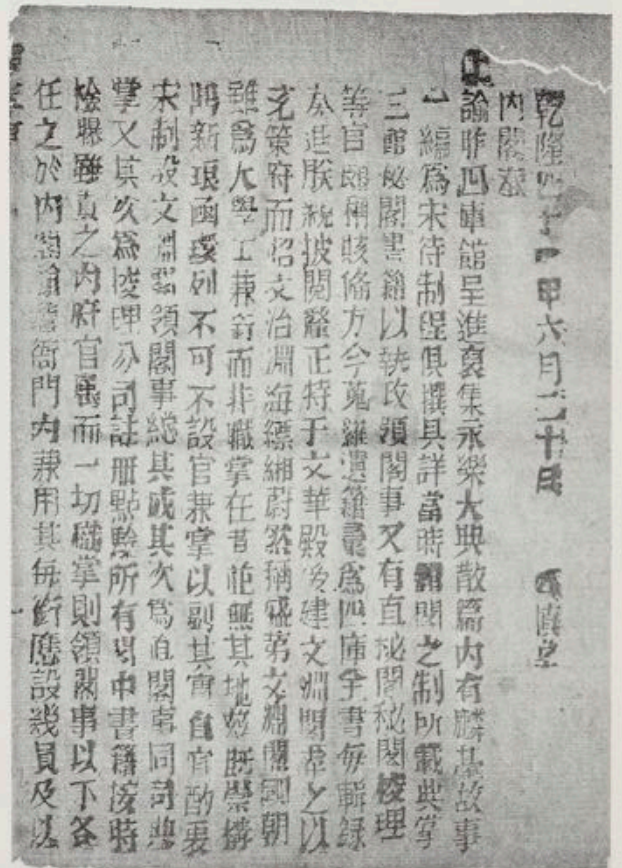 乾隆四十一年六月二十日
內閣奉
上諭昨四庫館呈進裒集永樂大典散篇內有麟臺故事
一編為宋待制程俱撰具詳當時館閣之制所載典掌
三館秘閣書籍以執政領閣事又有直秘閣秘閣校理
等官頗稱賅備方今蒐羅遺籍彙為四庫全書每輯錄
奏進朕親披閱釐正特于文華殿後建文淵閣弆之以
充策府而昭文治淵海縹緗蔚然稱盛第文淵閣國朝
雖為大學士兼銜而非職掌在昔並無其地茲既崇構
鼎新琅函環列不可不設官兼掌以副其實自宜酌衷
宋制設文淵閣領閣事總其成其次為直閣事同司典
掌又其次為校理分司註冊點驗所有閣中書籍按時
檢曝雖責之內府官屬而一切職掌則領閣事以下各
任之於內閣翰詹衙門內兼用其每銜應設幾員及以